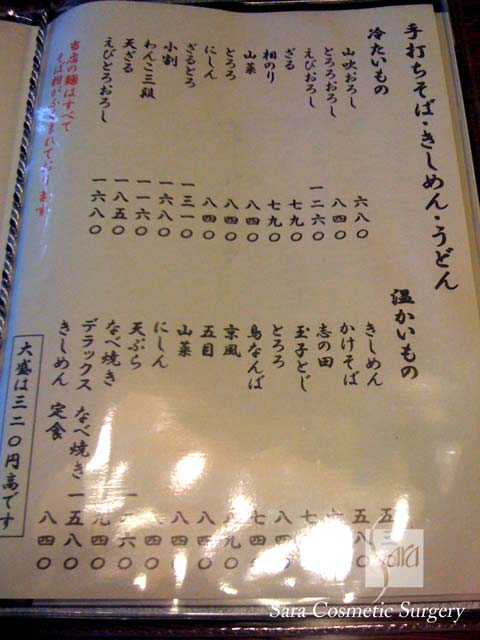 手打ちそば・きしめん・うどん
冷たいもの
山吹おろし 六八〇
とろろおろし 八四〇
えびおろし 一二六〇
ざる 七九〇
相のり 七九〇
山菜 八四〇
とろろ 八四〇
にしん 八四〇
ざるとろ 一三一〇
小割 一六八〇
わんこ三段 一一六〇
天ざる 一八五〇
えびとろおろし 一六八〇
当店の麺はすべて
そば粉がふくまれております
温かいもの
きしめん
かけそば 五八〇
志の田
玉子とじ
とろろ 八四〇
鳥なんば 七四〇
京風 八九〇
五目 八四〇
山菜 八四〇
にしん 八四〇
天ぷら
なべ焼き 九四〇
デラックス なべ焼き 一五八〇
きしめん 定食 八四〇
大盛は三二〇円高です
Sara
Sara Cosmetic Surgery